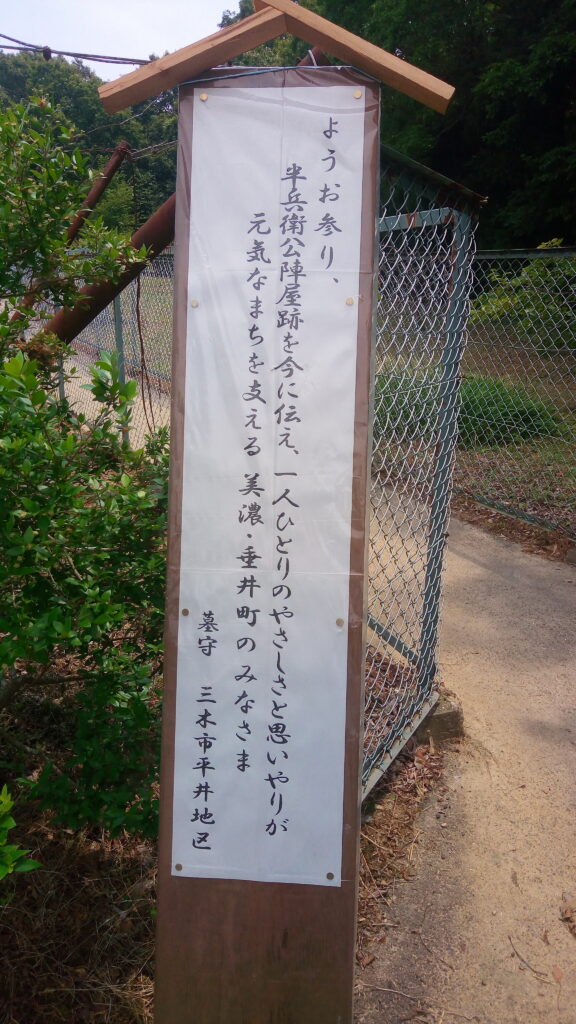 ようお参り、
半兵衛公陣屋跡を今に伝え、一人ひとりのやさしさと思いやりが
元気なまちを支える 美濃・垂井町のみなさま
墓守 三木市平井地区